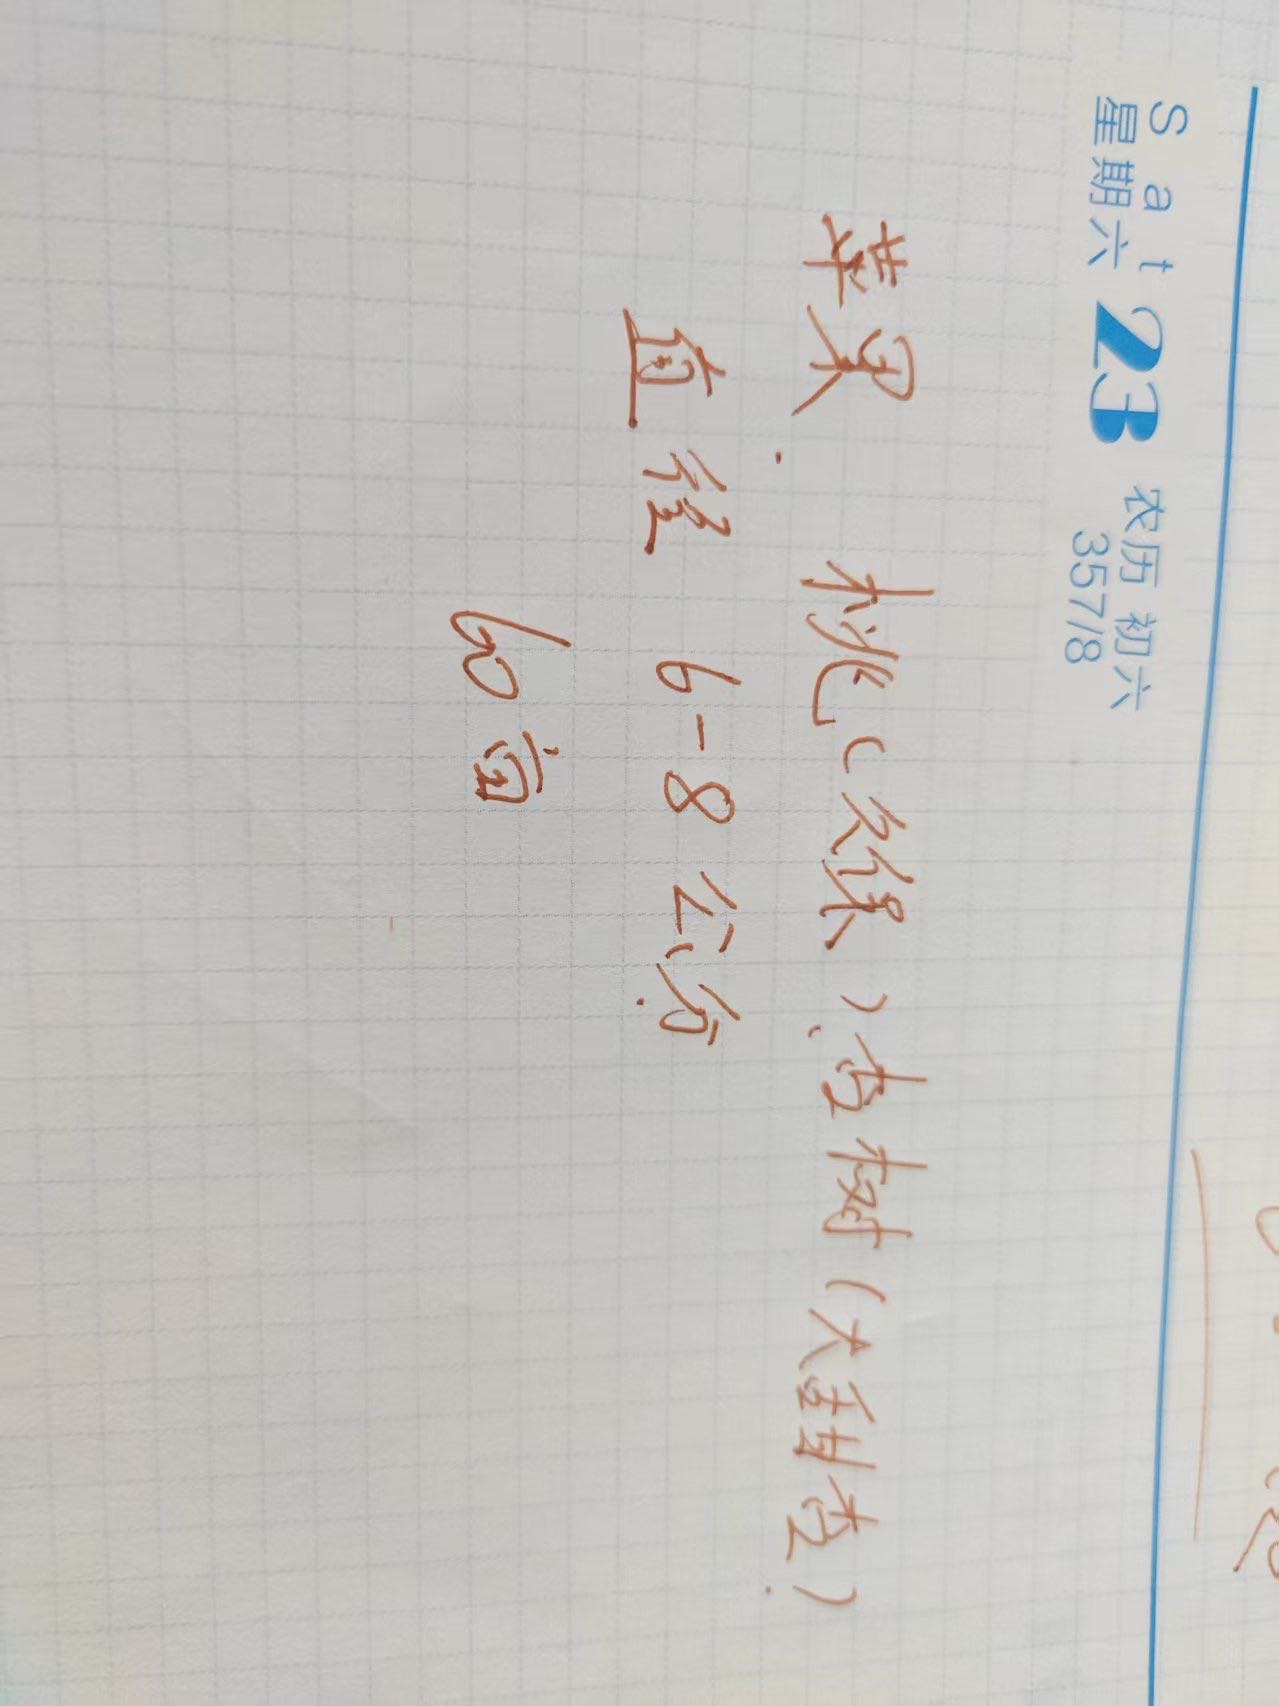 Sat 23 农历 初六
星期六 357/8
苹果. 桃(久保)、杏树(大甜杏)
直径 6-8公分.
60亩